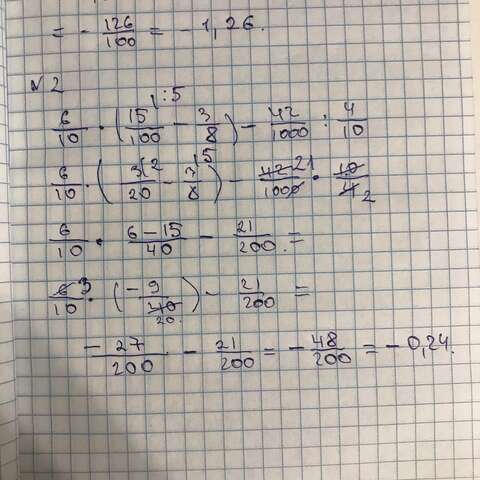 = - 126/100 = - 1,26.
№2
6/10 · (15/100 - 3/8) - 42/1000 : 4/10
6/10 · (3/20 - 3/8) - 42/1000 · 10/4
6/10 · 6-15/40 - 21/200 =
6/10 · (-9/40) - 21/200 =
-27/200 - 21/200 = - 48/200 = - 0,24.